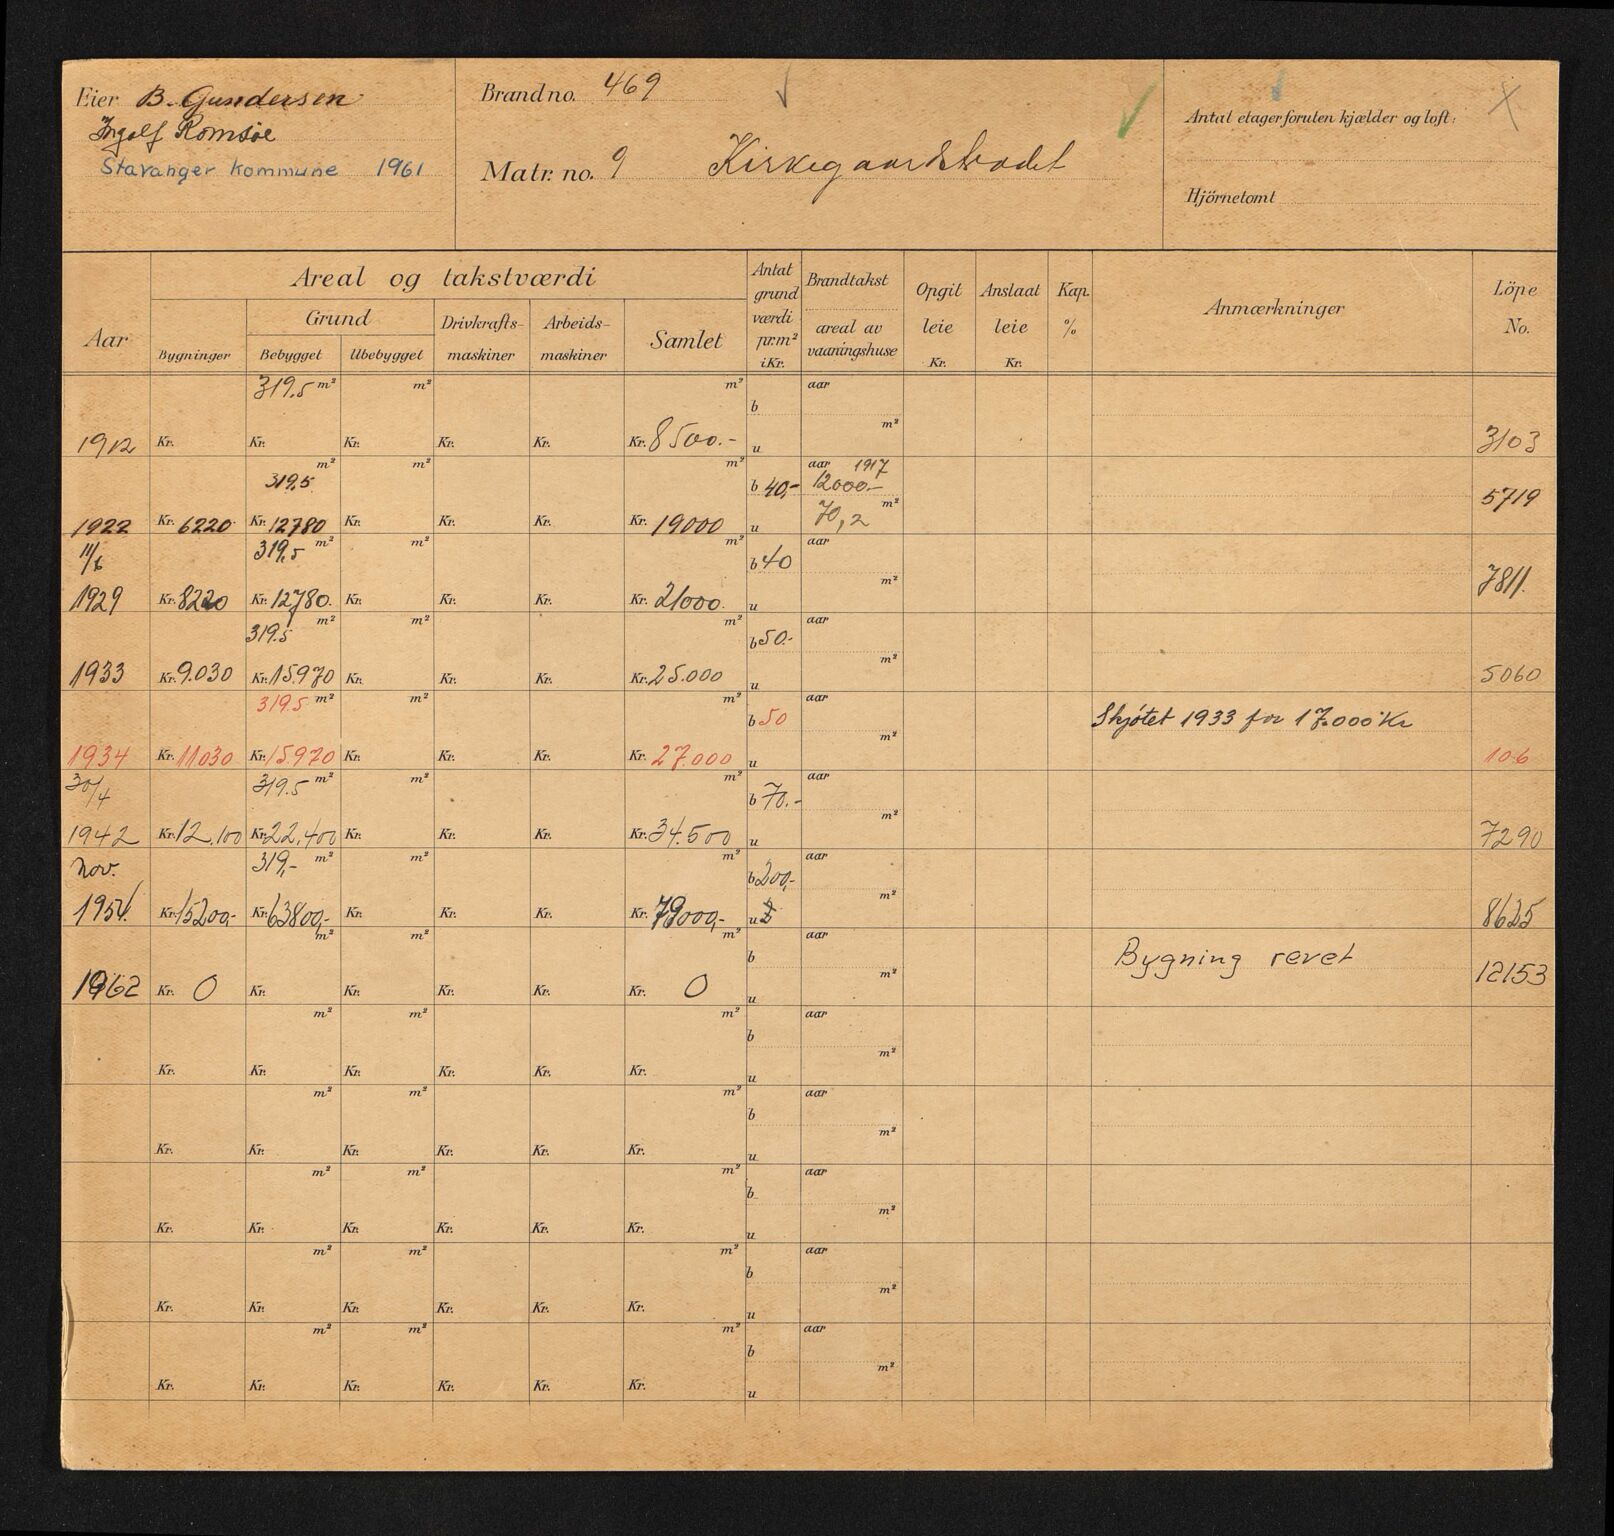 Eier B. Gundersen
Ingolf Romsøe
Stavanger kommune 1961
Brandno. 469
Matr. no. 9 Kirkegaardsbadet
Antal etager foruten kjælder og loft:
Hjörnetomt
Aar
Areal og takstværdi
Bygninger
Grund
Bebygget Ubebygget
Drivkrafts-
maskiner
Arbeids-
maskiner
Samlet
Antat
grund
værdi
pr.m²
i Kr.
Brandtakst
areal av
vaaningshuse
Opgit
leie
Kr.
Anslaat
leie
Kr.
Kap.
%
Anmærkninger
Löpe
No.
319.5 m² m² m² aar
b
m²
1912 Kr. Kr. Kr. Kr. Kr. Kr. 8500.- u 3103
m² m² m² aar 1917
319,5 b 40,- 12000.- 5719
m²
1922 Kr. 6220 Kr. 12780 Kr. Kr. Kr. Kr. 19000 u 70,2
11/6 319,5 m² m² m² aar
b 40
m²
1929 Kr. 8220 Kr. 12780. Kr. Kr. Kr. Kr. 21000. u 7811.
319.5 m² m² m² aar
b 50.-
m²
1933 Kr. 9.030 Kr. 15.970 Kr. Kr. Kr. Kr. 25.000 u 5060
319.5 m² m² m² aar
b 50 Skjøtet 1933 for 17.000 Kr
m²
1934 Kr. 11030 Kr. 15.970 Kr. Kr. Kr. Kr. 27.000 u 106
30/4 319.5 m² m² m² aar
b 70.-
m²
1942 Kr. 12.100 Kr. 22.400 Kr. Kr. Kr. Kr. 34.500 u 7290
Nov. 319,- m² m² m² aar
b 200,-
m²
1954. Kr. 15200,- Kr. 63800,- Kr. Kr. Kr. Kr. 79000,- u 8625
m² m² m² aar
b Bygning revet
m²
1962 Kr. 0 Kr. Kr. Kr. Kr. Kr. 0 u 12153
m² m² m² aar
b
m²
Kr. Kr. Kr. Kr. Kr. Kr. u
m² m² m² aar
b
m²
Kr. Kr. Kr. Kr. Kr. Kr. u
m² m² m² aar
b
m²
Kr. Kr. Kr. Kr. Kr. Kr. u
m² m² m² aar
b
m²
Kr. Kr. Kr. Kr. Kr. Kr. u
m² m² m² aar
b
m²
Kr. Kr. Kr. Kr. Kr. Kr. u